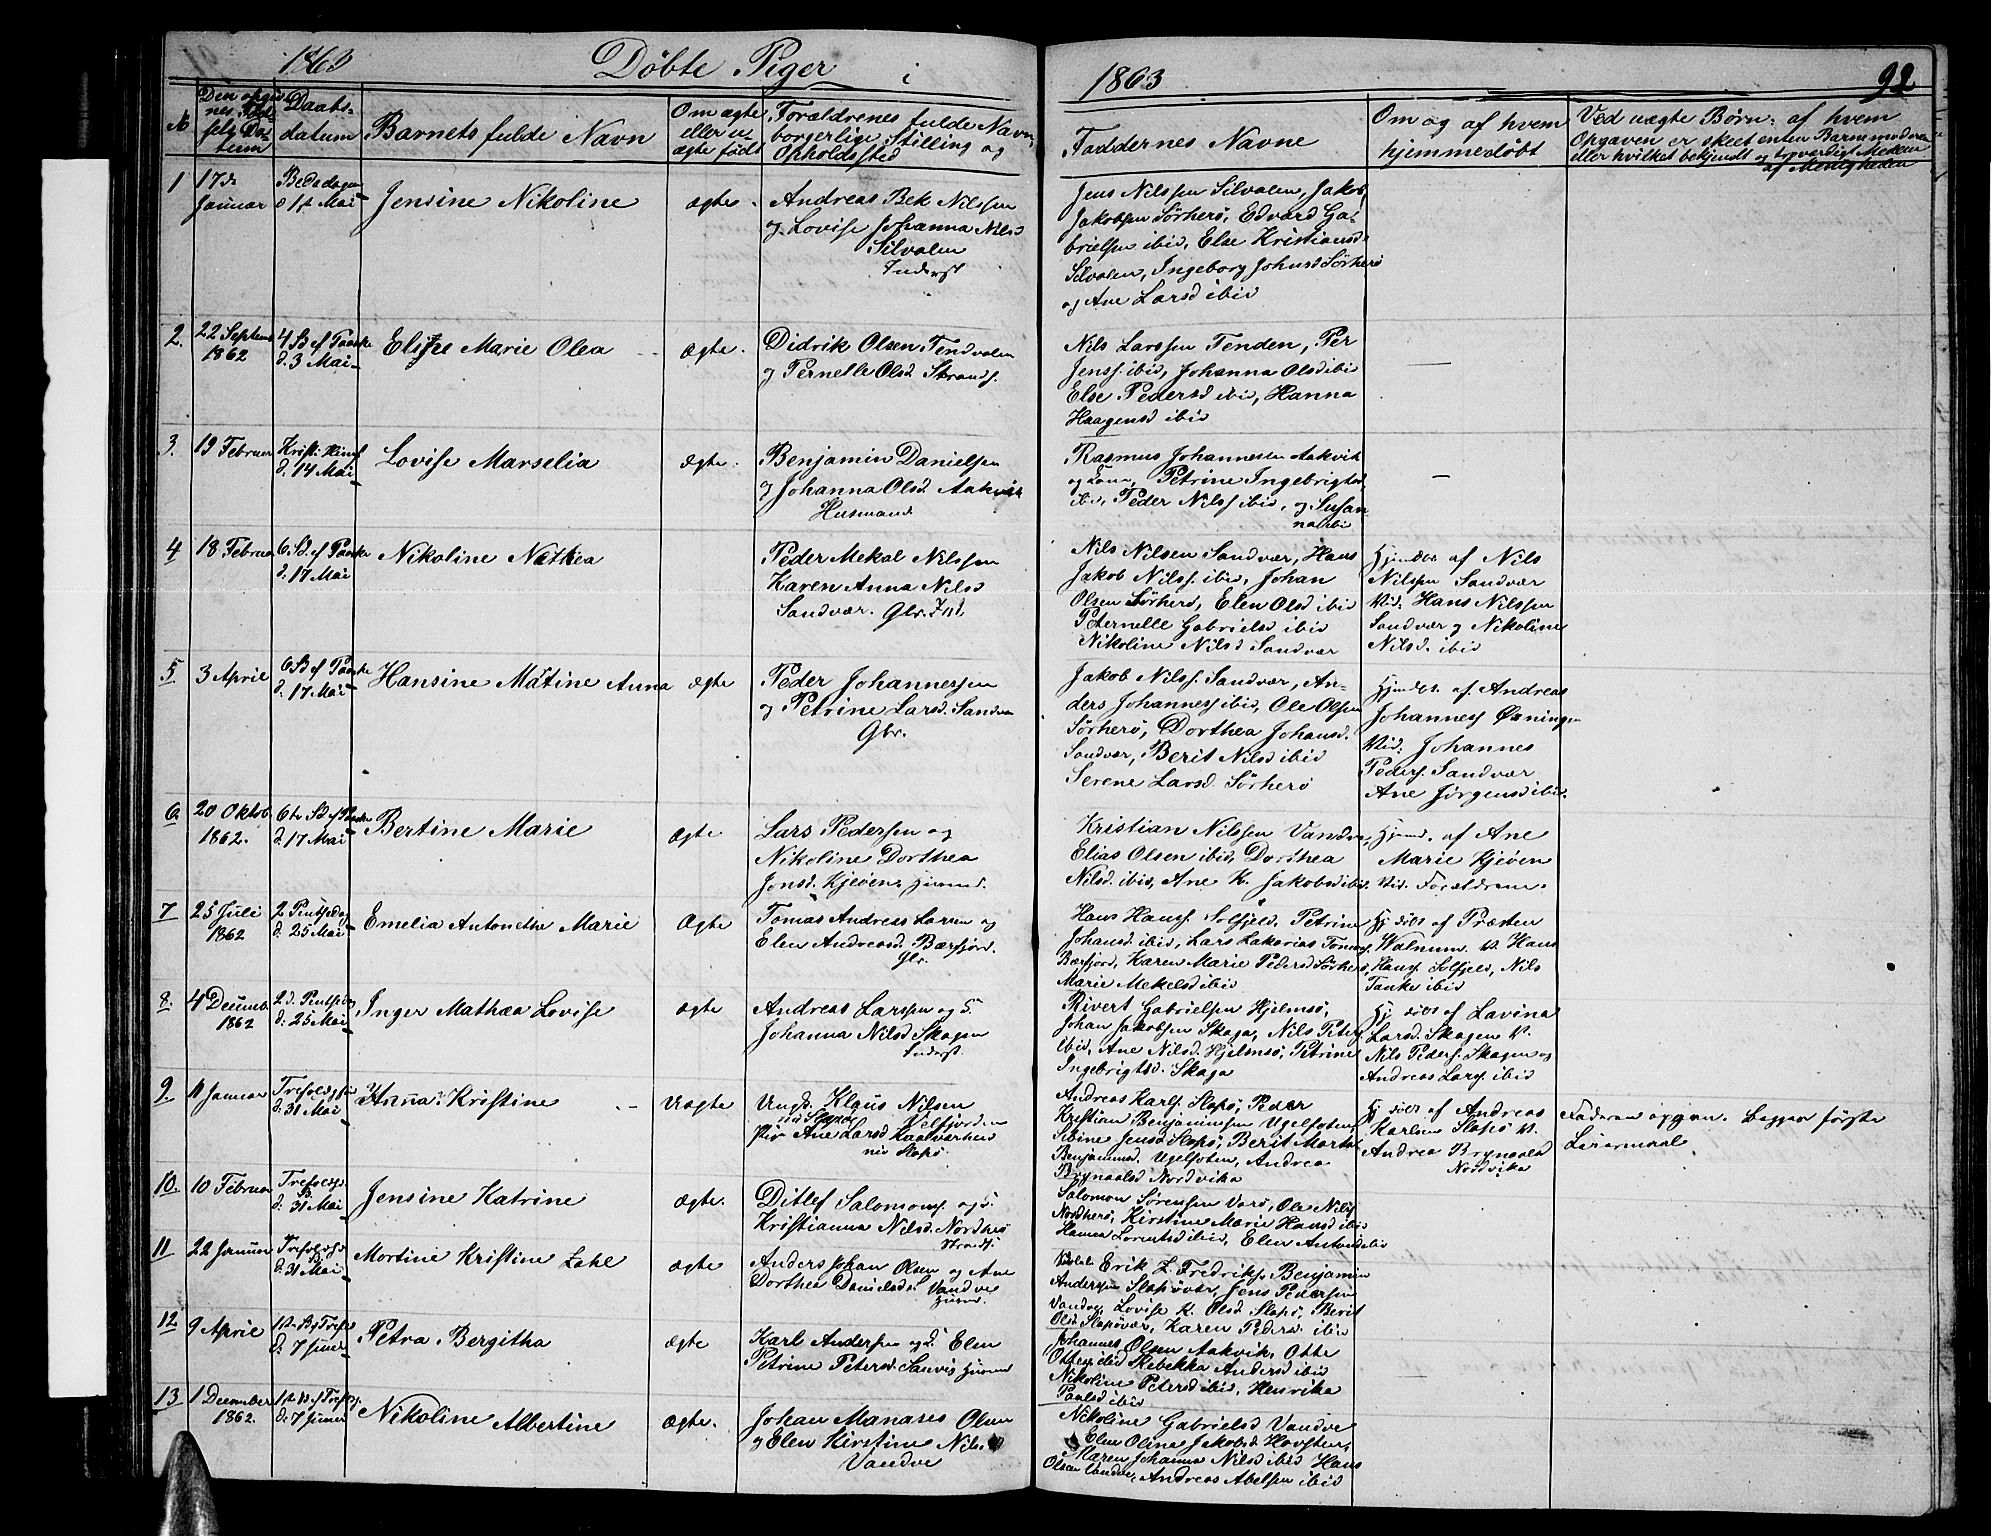 1863
Döbte Piger i
1863
92
№
Daabs-
datum
Barnets fulde Navn
Om ægte
eller u-
ægte født
Forældrenes fulde Navn,
borgerlige Stilling og
Opholdssted
Faddernes Navne
Om og af hvem
hjemmedøbt
Ved uægte Børn: af hvem
Opgaven er skeet enten Barnemoderen
eller hvilket bekjendt og troværdigt Medlem
af Menigheden
1
17de
Januar
Bededagen
d 1st Mai
Jensine Nikoline
ægte
Andreas Bek Nilssen
og Lovise Johanna Nilsd
Silvalen
Inderst
Jens Nilssen Silvalen, Jakob
Jakobsen Sørherø, Edvard Ga-
brielsen ibid, Else Kristiansd.
Silvalen, Ingeborg Johnsd Sørherø
og Ane Larsd ibid
2.
22 Septemb
1862
4 S. ef Paaske
d. 3 Mai
Elisse Marie Olea
ægte.
Didrik Olsen Tendvalen
og Pernelle Olsd. Strands.
Nils Larssen Tenden, Per
Jenss. ibid, Johanna Olsd ibid
Else Pedersd ibid, Hanna
Haagensd ibid
3.
19 Februar
Kristi Himf
d. 14 Mai
Lovise Marselia
ægte.
Benjamin Danielsen
og Johanna Olsd. Aakvik
Husmand.
Rasmus Johannesen Aakvik
og Kone, Petrine Ingebrigtsd
ibid, Peder Nilss ibid, og Susan
na ibid
4
18 Februar
6. S. ef Paaske
d. 17 Mai
Nikoline Nathea
Peder Mekal Nilssen
Karen Anna Nilsd
Sandvær. Gbr. Ind.
Nils Nilsen Sandvær, Hans
Jakob Nilss. ibid, Johan
Olsen Sørherø, Elen Olsd ibid
Peternelle Gabrielsd ibid
Nikoline Nilsd Sandvær
Hjmdøbt af Nils
Nilssen Sandvær
Vid. Hans Nilssen
Sandvær og Nikoline
Nilsd. ibid
5.
3 April
6 S. ef Paaske
d. 17 Mai
Hansine Matine Anna
ægte
Peder Johannessen
og Petrine Larsd. Sandvær
Gbr.
Jakob Nilss. Sandvær, An-
ders Johanness ibid, Ole Olsen
Sørherø, Dorthea Johansd.
Sandvær, Berit Nilsd ibid
Serene Larsd. Sørherø
Hjmdøbt. af Andreas
Johanness Øxningen
Vid. Johannes
Peders. Sandvær
Ane Jörgensd ibid.
6.
20 Oktob.
1862.
6te S. ef Paaske
d. 17 Mai
Bertine Marie
ægte
Lars Pedersen og
Nikoline Dorthea
Jonsd. Kjeøen, Husmd.
Kristian Nilssen Vandve,
Elias Olsen ibid, Dorthea
Nilsd. ibid, Ane K. Jakobsd ibid.
Hjemd. af Ane
Marie Kjeøen
Vid. Forældrene.
7
25 Juli
1862
2 Pintsedag
d. 25 Mai
Emelia Antonethe Marie
ægte
Tomas Andreas Larsen og
Elen Andreasd. Bærfjord.
Gbr.
Hans Hanss. Solfjeld, Petrine
Johansd. ibid, Lars Zakarias Tomass
Bærfjord, Karen Marie Pedersd Sørherø,
Marie Mekelsd ibid
Hj døbt af Præsten
Walnum. V. Hans
Hanss. Solfjeld, Nils
Tanke ibid
8.
4 Decemb
1862
2.d. Pintsedag
d. 25 Mai
Inger Mathea Lovise
ægte
Andreas Larssen og
Johanna Nilsd Skagen
Inderst.
Rivert Gabrielsen Hjelmsø,
Johan Jakobsen Skaga, Nils Peters
ibid, Ane Nilsd. Hjelmsø, Petrine
Ingebrigtsd. Skaga
Hj døbt af Lavina
Larsd. Skagen V.
Nils Peders. Skagen og
Andreas Larss. ibid
9.
11 Januar
d. 31 Mai
Anna Kristine
Uægte
Ungk. Klaus Nilsen
Velfjorden
Pige Ane Larsd
Andreas Karls. Slapø, Peder
Kristian Benjaminsen Ugelfoten,
Sibine Jensd Slapø, Berit Marta
Benjaminsd. Ugelfoten, Andrea
Brynaalsd Nordvika
Hj døbt af Andreas
Karlsen Slapø V.
Andrea Brynaalsd
Nordvika
Faderen opgav. Begges første
Leiermaal
10.
10 Februar
d. 31 Mai
Jensine Katrine
ægte.
Ditlef Salomons. og
Kristianna Nilsd. Nordherø
Strands.
Salomon Sørensen Varø, Ole Nilss
Nordherø, Kirstine Marie Hansd ibid
Hanna Lorentsd ibid, Elen Antonsd ibid
11
22 Januar
d. 31 Mai
Mortine Kristine Zahl
ægte
Anders Johan Olsen og Ane
Dorthea Danielsdat. Vandve
Husmd.
Erik Z. Fredriks, Benjamin
Andersen Slapøvær, Jens Pedersen
Vandve, Lovise K. Olsd. Slapø, Berit
Olsd Slapøvær, Karen Peders. ibid
12
9 April
d. 7 Juni
Petra Bergitha
ægte
Karl Andersen og Elen
Petrine Petersd. Sanvis Husmd
Johannes Olsen Aakvik, Otte
Ottesen ibid Rebekka Andersd ibid
Nikoline Petersd ibid, Henrika
Paulsd ibid
13
1 December
1862.
d. 7 Juni
Nikoline Albertine
ægte.
Johan Manases Olsen
og Elen Kirstine Nilsd
Vandve
Nikoline Gabrielsd Vandve
Elen Oline Jakobsd. Hovsten,
Maren Johanna Nilsd ibid Hans
Olsen Vandve, Andreas Abelsen ibid